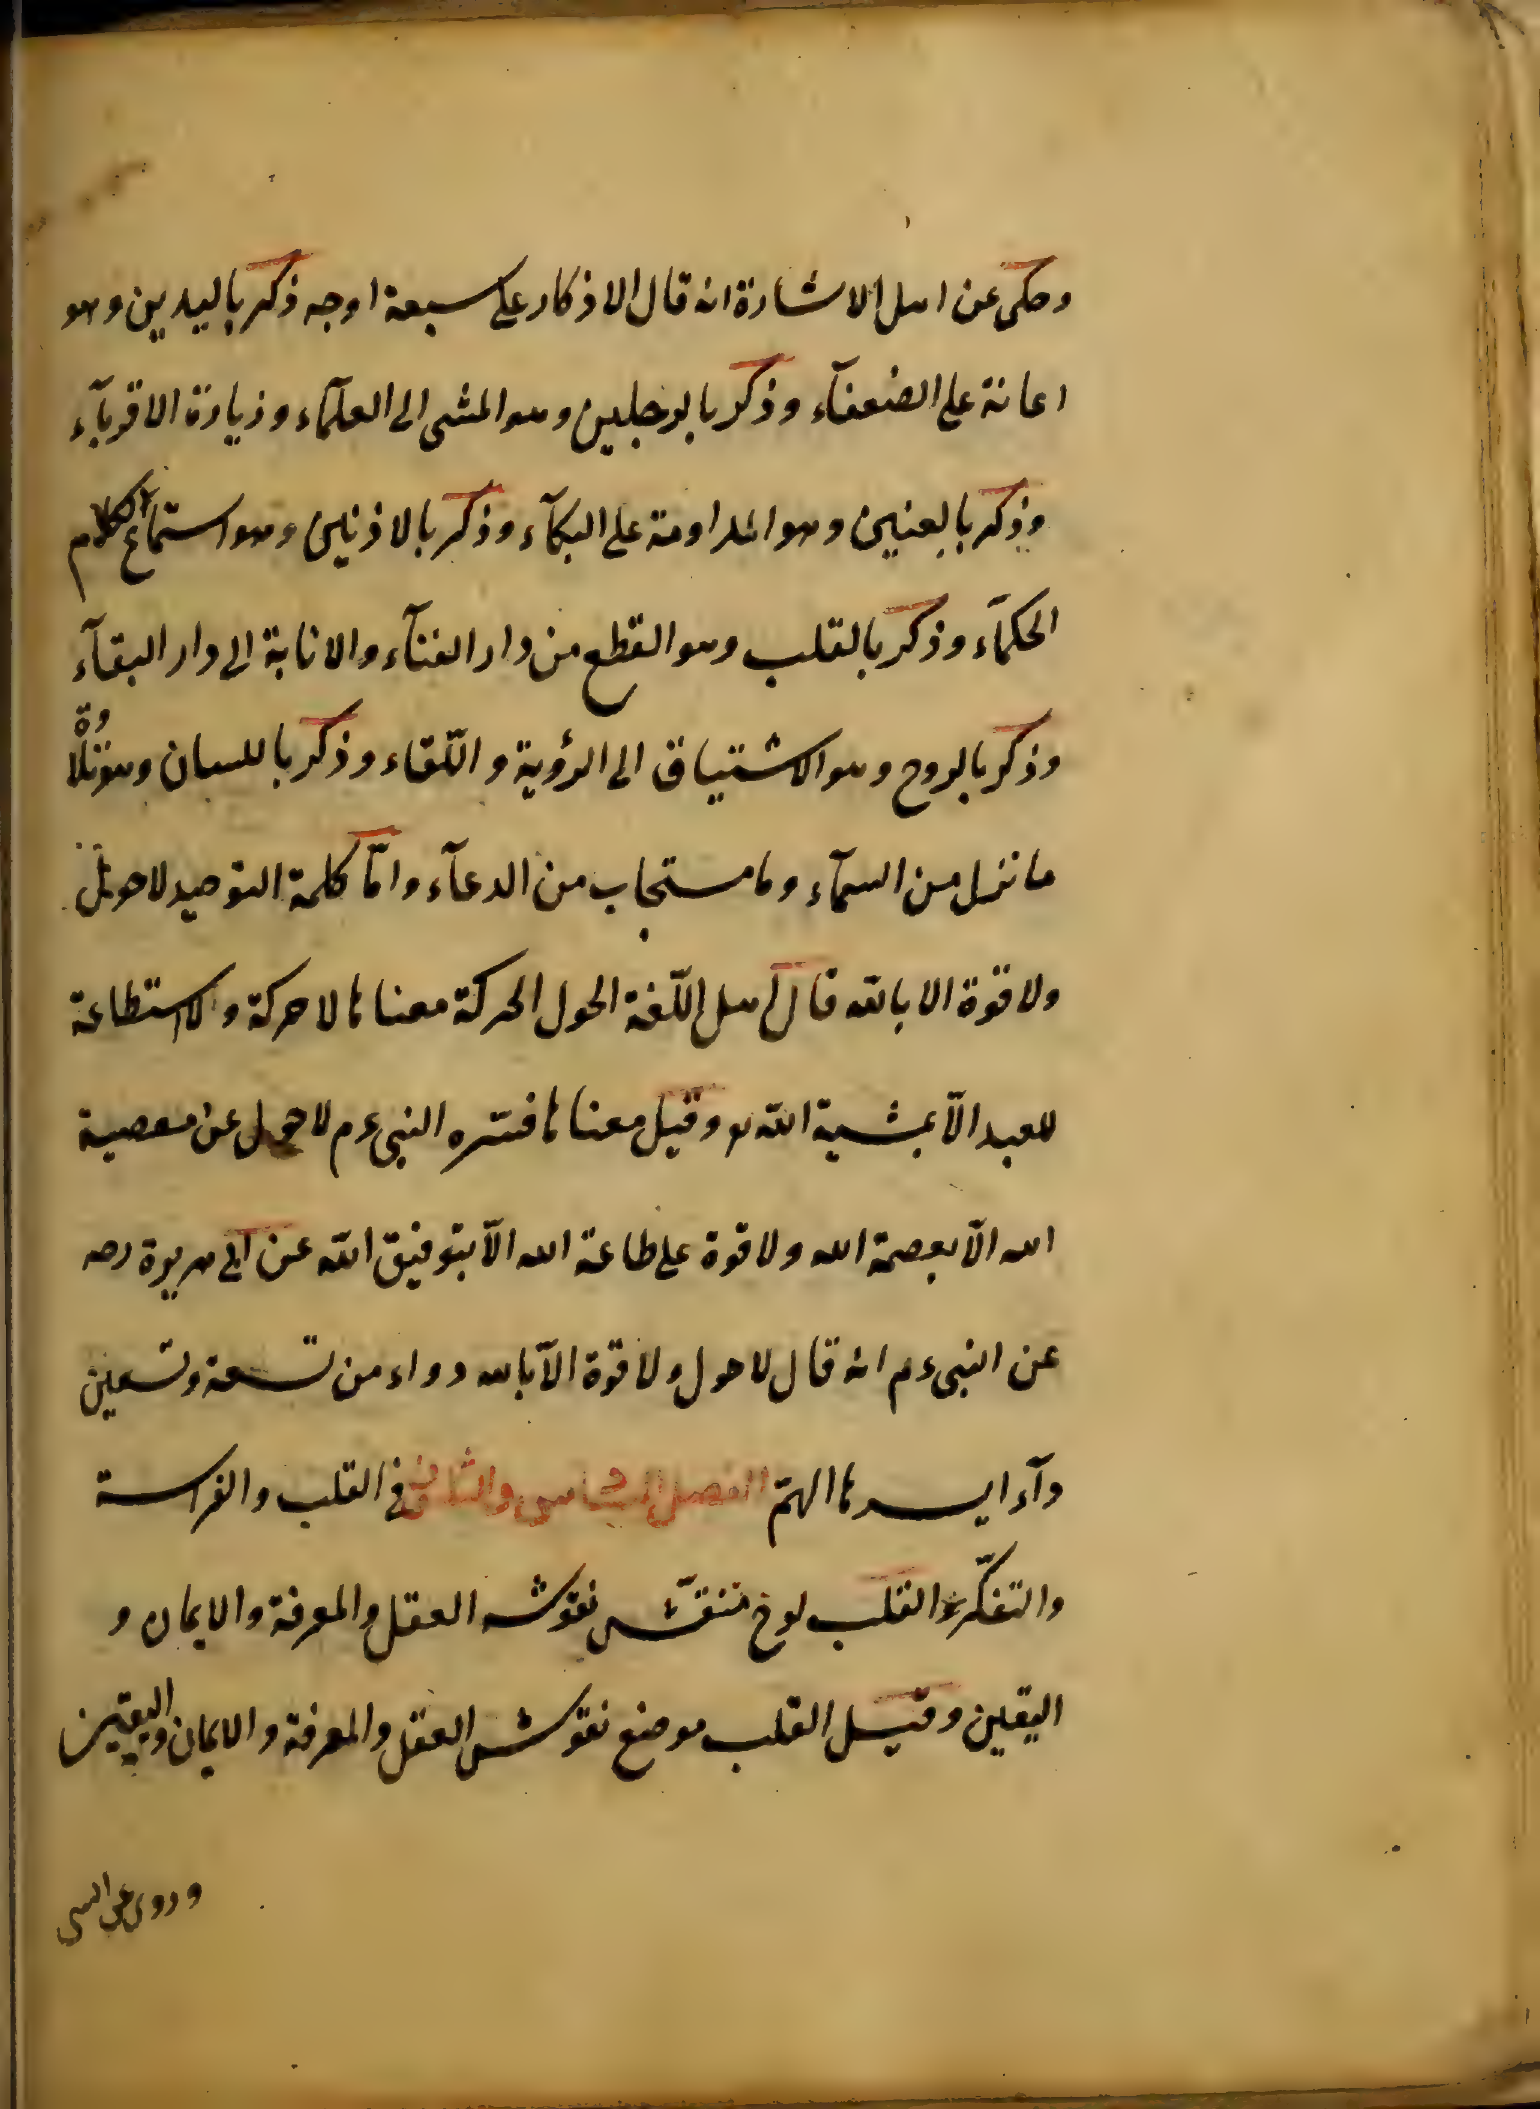 وحكى عن اهل الاشارة انه قال الاذكار على سبعة اوجه ذكر باليدين وهو
اعانة على الضعفآء وذكر بالرجلين وهو المشى الى العلمآء وزيارة الاقربآء
وذكر بالعينين وهو المداومة على البكآء وذكر بالاذنين وهو استماع كلام
الحكمآء وذكر بالقلب وهو القطع من دار الفنآء والانابة الى دار البقآء
وذكر بالروح وهو الاشتياق الى الرؤية واللّقاء وذكر باللسان وهو تلاوة
ما نزل من السمآء وما مستجاب من الدعآء وامّا كلمة التوحيد لا حول
ولا قوة الا بالله قال اهل اللّغة الحول الحركة معناها لا حركة ولا استطاعة
للعبد الّا بمشية الله وقيل معناها فسّره النبى عم لا حول عن معصية
الله الّا بعصمة الله ولا قوة على طاعة الله الّا بتوفيق الله عن ابى هريرة رضه
عن النبى عم انه قال لا حول ولا قوة الّا بالله دواء من تسعة وتسعين
دآء ايسرها الهمّ الفصل والثانى فى القلب والفراسة
والتفكّر والقلب لوح منقّش نقوشه العقل والمعرفة والايمان و
اليقين وقيل القلب موضع نقوش العقل والمعرفة والايمان واليقين
وروى عن النبى